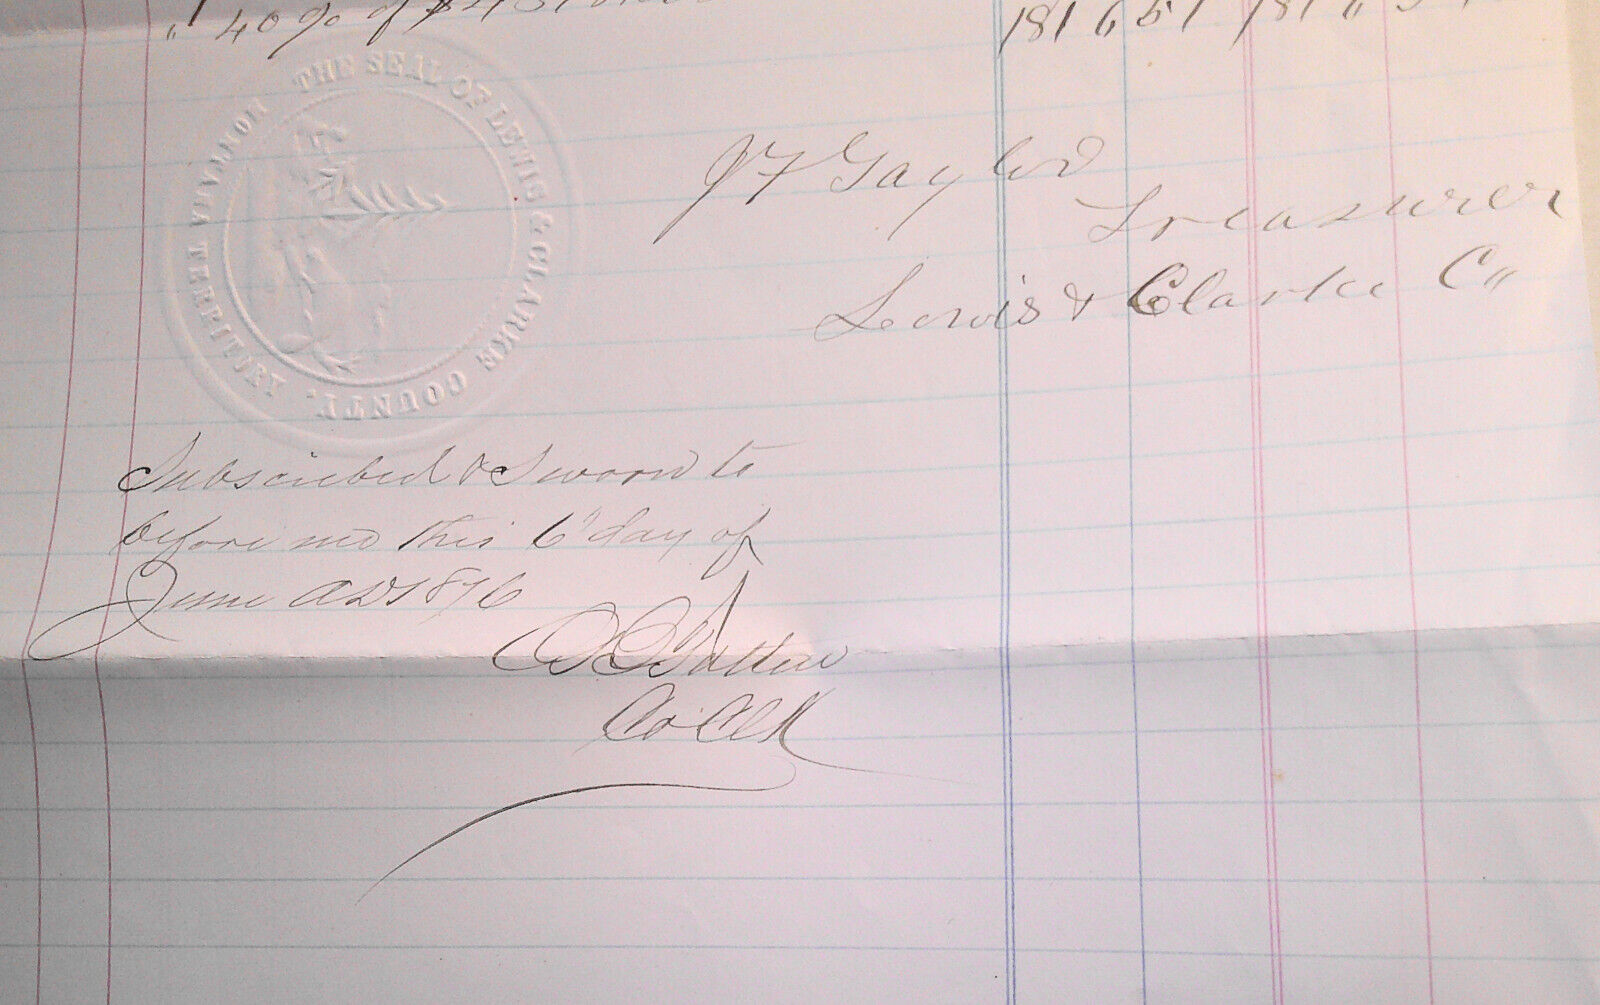 " 40% of $
THE SEAL OF LEWIS & CLARKE COUNTY. MONTANA TERRITORY
J F Taylor
Treasurer
Lewis & Clarke Co
Subscribed & Sworn to
before me this 6" day of
June AD 1876
Co Clk